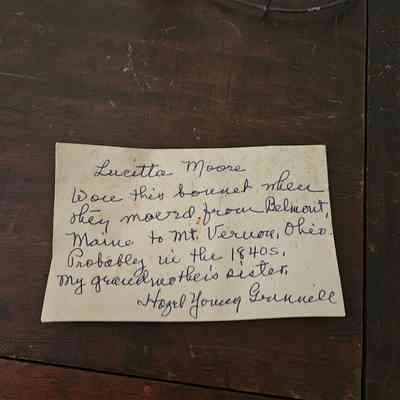 Lucetta Moore
Wore this bonnet when
they moved from Belmont,
Maine to Mt. Vernon, Ohio.
Probably in the 1840s.
My grandmother's sister.
Hazel Young Grinnell